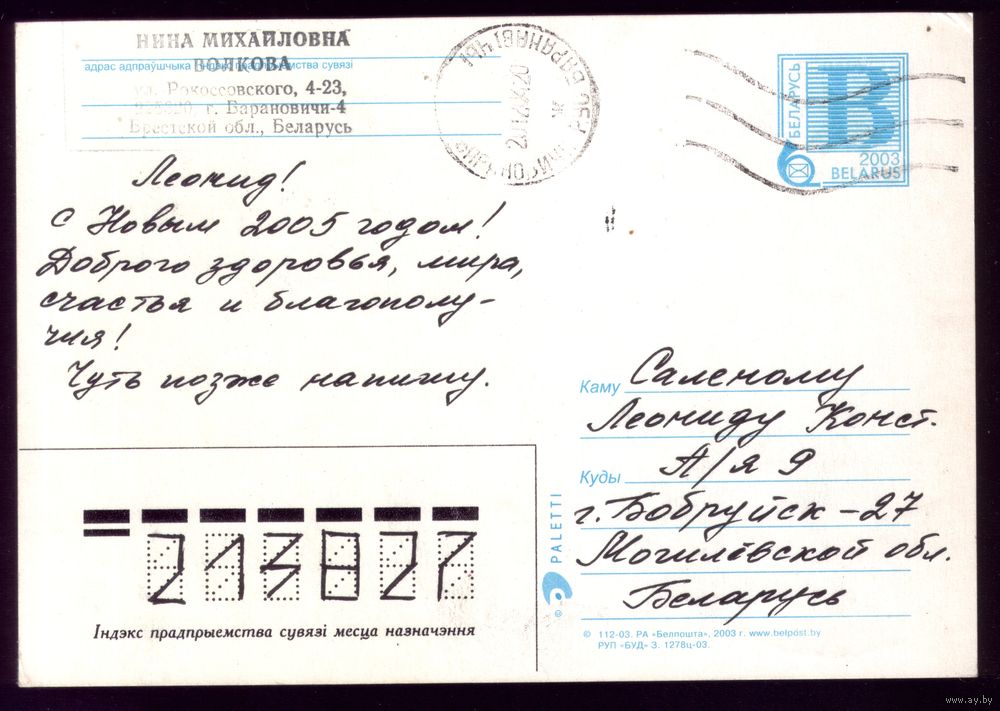 НИНА МИХАЙЛОВНА
ВОЛКОВА
адрас адпраўшчыка індэкс прадпрыемства сувязі
ул. Рокоссовского, 4-23,
г. Барановичи-4
Брестской обл., Беларусь
БЕЛАРУСЬ
B
2003
BELARUS
Леонид!
С Новым 2005 годом!
Доброго здоровья, мира,
счастья и благополу-
чия!
Чуть позже напишу.
Каму Саленому
Леониду Конст.
Куды А/я 9
г. Бобруйск-27
Могилёвской обл.
Беларусь
213827
Індэкс прадпрыемства сувязі месца назначэння
© PALETTI
© 112-03. РА «Белпошта», 2003 г. www.belpost.by
РУП «БУД» З. 1278ц-03.
www.ay.by